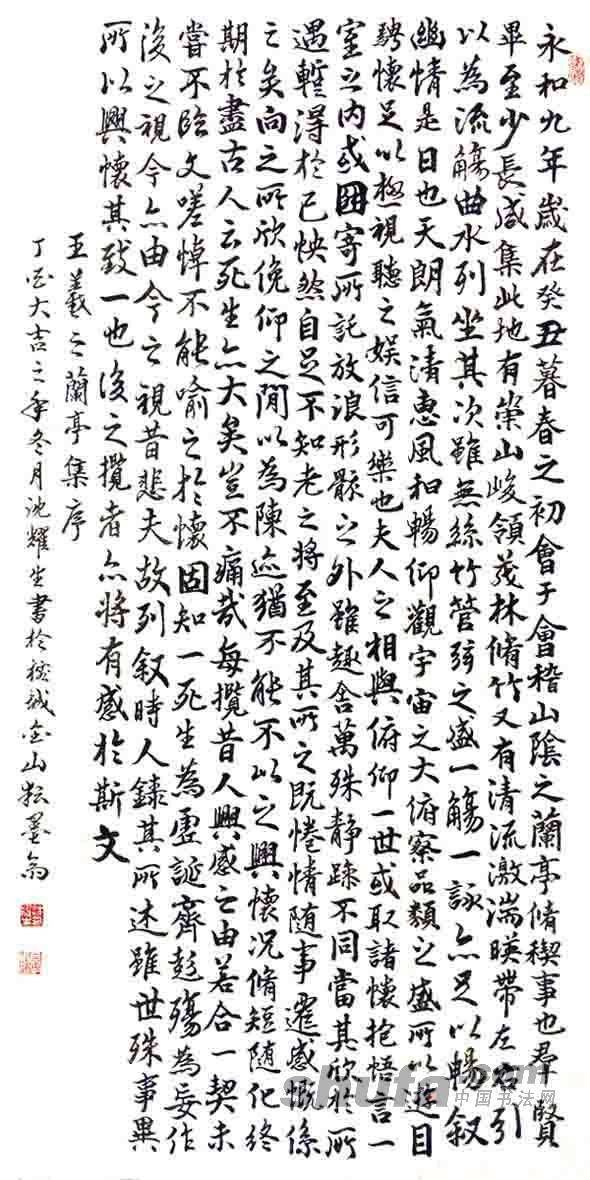 永和九年歲在癸丑暮春之初會于會稽山陰之蘭亭脩稧事也羣賢
畢至少長咸集此地有崇山峻領茂林脩竹又有清流激湍暎帶左右引
以為流觴曲水列坐其次雖無絲竹管弦之盛一觴一詠亦足以暢叙
幽情是日也天朗氣清惠風和暢仰觀宇宙之大俯察品類之盛所以遊目
騁懷足以極視聽之娛信可樂也夫人之相與俯仰一世或取諸懷抱悟言一
室之内或因寄所託放浪形骸之外雖趣舍萬殊静躁不同當其欣於所
遇蹔得於己怏然自足不知老之將至及其所之既惓情隨事遷感慨係
之矣向之所欣俛仰之閒以為陳迹猶不能不以之興懷況脩短隨化終
期於盡古人云死生亦大矣豈不痛哉每攬昔人興感之由若合一契未
嘗不臨文嗟悼不能喻之於懷固知一死生為虛誕齊彭殤為妄作
後之視今亦由今之視昔悲夫故列叙時人錄其所述雖世殊事異
所以興懷其致一也後之攬者亦將有感於斯文
王羲之蘭亭集序
丁酉大吉之年冬月沈耀生書於金山墨
shufa.com
中国书法网